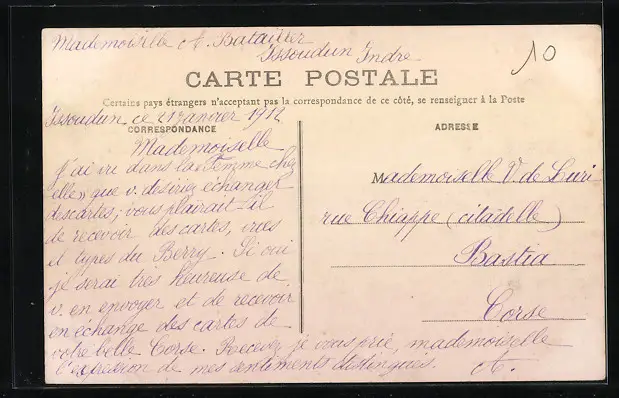 Mademoiselle A. Batailler
Issoudun Indre
10
CARTE POSTALE
Certains pays étrangers n'acceptant pas la correspondance de ce côté, se renseigner à la Poste
Issoudun ce 21 janvier 1912
CORRESPONDANCE
Mademoiselle
J'ai vu dans la "Femme chez
elle" que v. désiriez échanger
des cartes; vous plairait-il
de recevoir des cartes, vues
et types du Berry. Si oui
je serai très heureuse de
v. en envoyer et de recevoir
en échange des cartes de
votre belle Corse. Recevez, je vous prie, mademoiselle
l'expression de mes sentiments distingués. A.
ADRESSE
Mademoiselle V. de Luri
rue Chiappe (citadelle)
Bastia
Corse